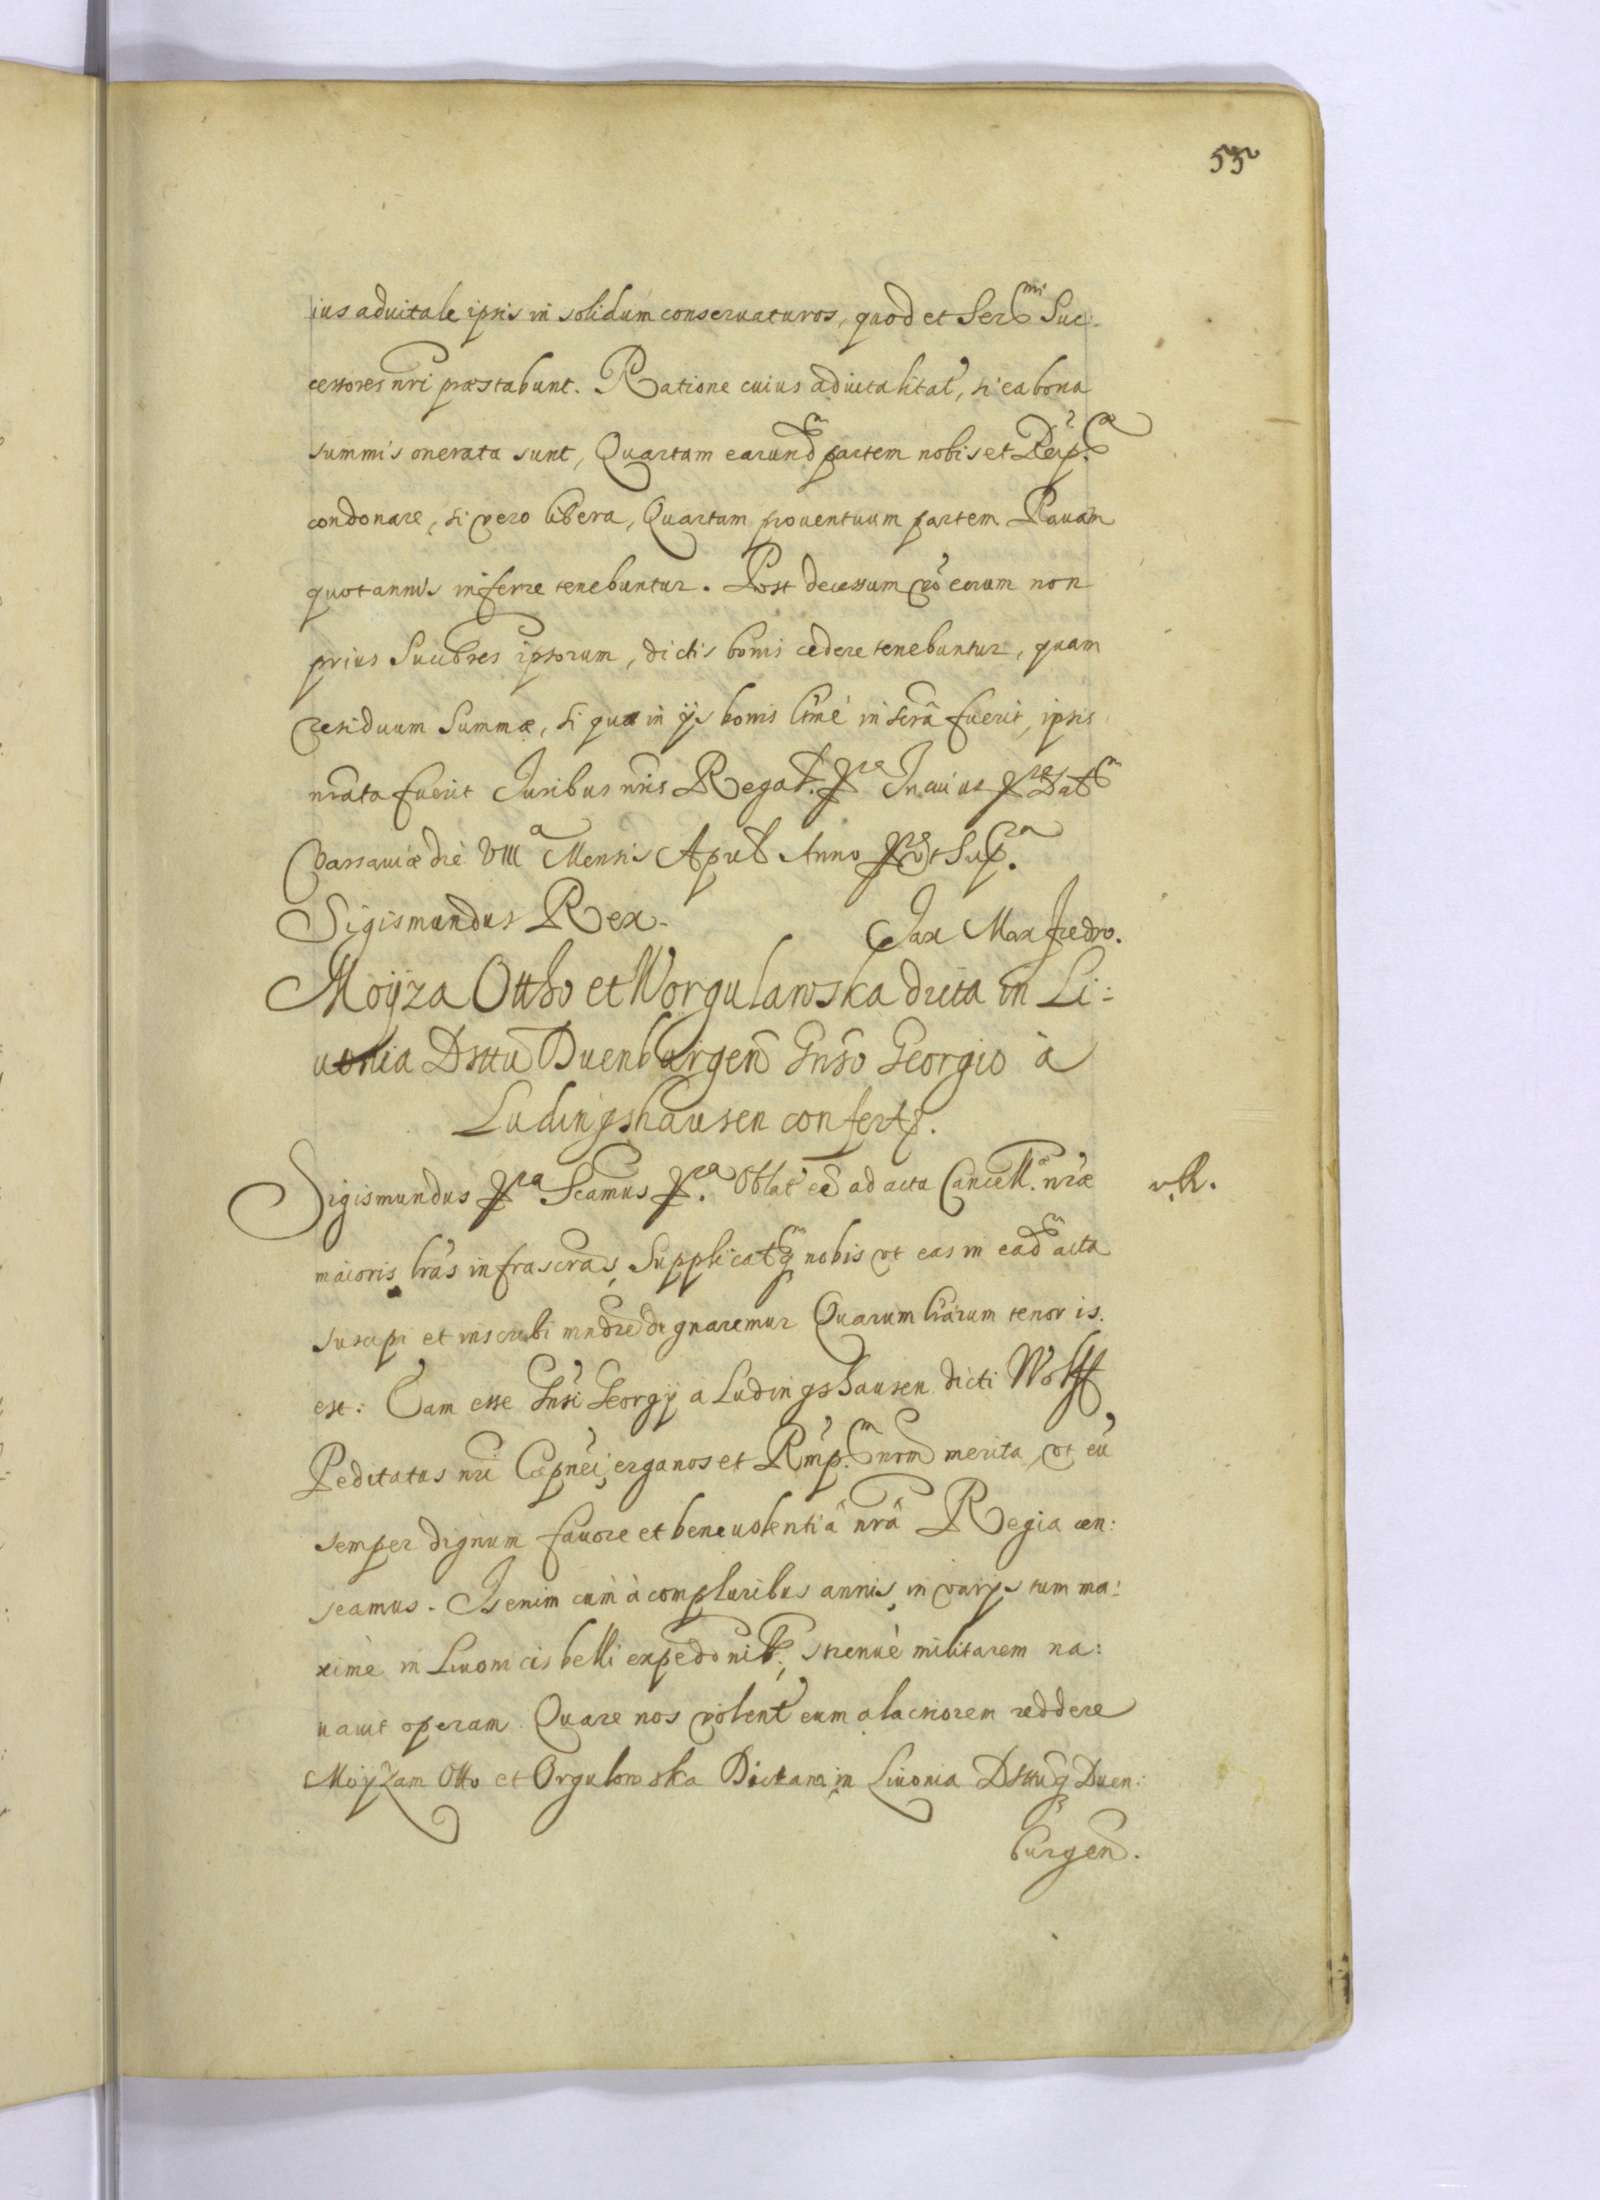 55
ius aduitale ipsis in solidum conseruaturos, quod et Ser^mi Suc:
cessores nri praestabunt. Ratione cuius aduitalitat, si ea bona
summis onerata sunt, Quartam earund^m partem nobis et Reip^cae
condonare, si vero libera, Quartam prouentuum partem Rauam
quotannis inferre tenebuntur. Post decessum vo eorum non
prius Succores ipsorum, dictis bonis cedere tenebuntur, quam
residuum Summae, si quae in ijs bonis ltmè inscra fuerit, ipsis
nrata fuerit Juribus nris Regal. p^ra In cuius p^ra Dat^m
Varsauiae die VIII^a Mensis April Anno p^ro vt Sup^ra.
Sigismundus Rex. Jax Max Fredro.
Moyza Ottho et Worgulawska dicta in Li:
uonia Dsttu Duenburgen Gnso Georgio à
Ludingshausen confert^r.
Sigismundus p^ra Scamus p^ra. Oblat eê ad acta Cancell. nrae v. R.
maioris lras infrascras, Supplicat^mq nobis vt eas in ead^m acta
suscipi et inscribi mndre dignaremur Quarum lrarum tenor is
est: Eam esse Gnsi Georgij a Ludingshausen dicti Wolff
Peditatus nri Capnei, erga nos et Rmp^cm nrm merita, vt eu
semper dignum fauore et beneuolentiâ nrâ Regia cen:
seamus. Is enim cum à compluribus annis, in varijs tum ma:
ximè in Liuonicis belli expeddonib^s, strenuè militarem na:
uauit operam. Quare nos volent eum alacriorem reddere
Moyzam Otto et Orgulowska Dictam in Liuonia Dsttu q Duen:
burgen.